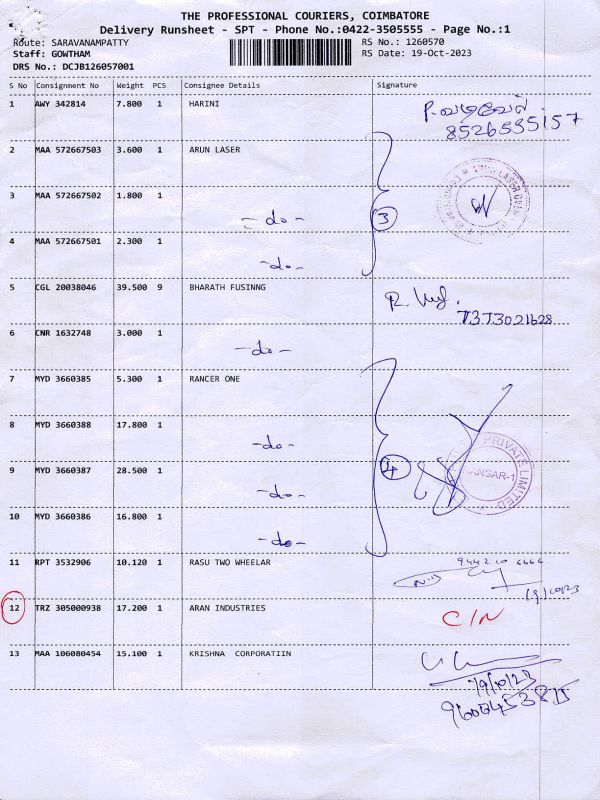 THE PROFESSIONAL COURIERS, COIMBATORE
Delivery Runsheet - SPT - Phone No.:0422-3505555 - Page No.:1
Route: SARAVANAMPATTY
RS No.: 1260570
Staff: GOWTHAM
RS Date: 19-Oct-2023
DRS No.: DCJB126057001
S No Consignment No Weight PCS Consignee Details Signature
1 AWY 342814 7.800 1 HARINI
P. வடிவேல்
8526535157
2 MAA 572667503 3.600 1 ARUN LASER
3 MAA 572667502 1.800 1 -do- 3
4 MAA 572667501 2.300 1 -do-
5 CGL 20038046 39.500 9 BHARATH FUSINNG
6 CNR 1632748 3.000 1 -do-
7 MYD 3660385 5.300 1 RANCER ONE
8 MYD 3660388 17.800 1 -do-
9 MYD 3660387 28.500 1 -do- 4
PRIVATE LIMITED
ANSAR-1
10 MYD 3660386 16.800 1 -do-
11 RPT 3532906 10.120 1 RASU TWO WHEELAR
19/10/23
12 TRZ 305000938 17.200 1 ARAN INDUSTRIES C/N
13 MAA 106080454 15.100 1 KRISHNA CORPORATIIN
19/10/23